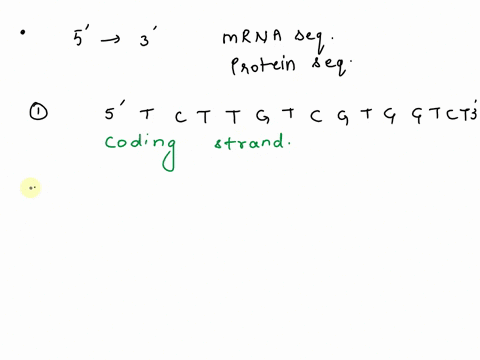 5' → 3' mRNA seq.
Protein seq.
① 5' T C T T G T C G T G G T C T 3'
Coding strand.